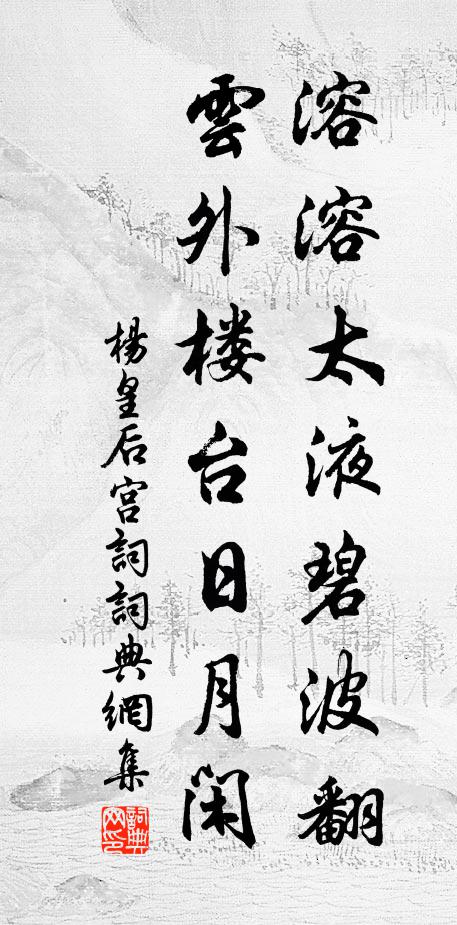 溶溶太液碧波翻
雲外楼台日月闲
楊皇后宫詞詞典網集
詞典网印